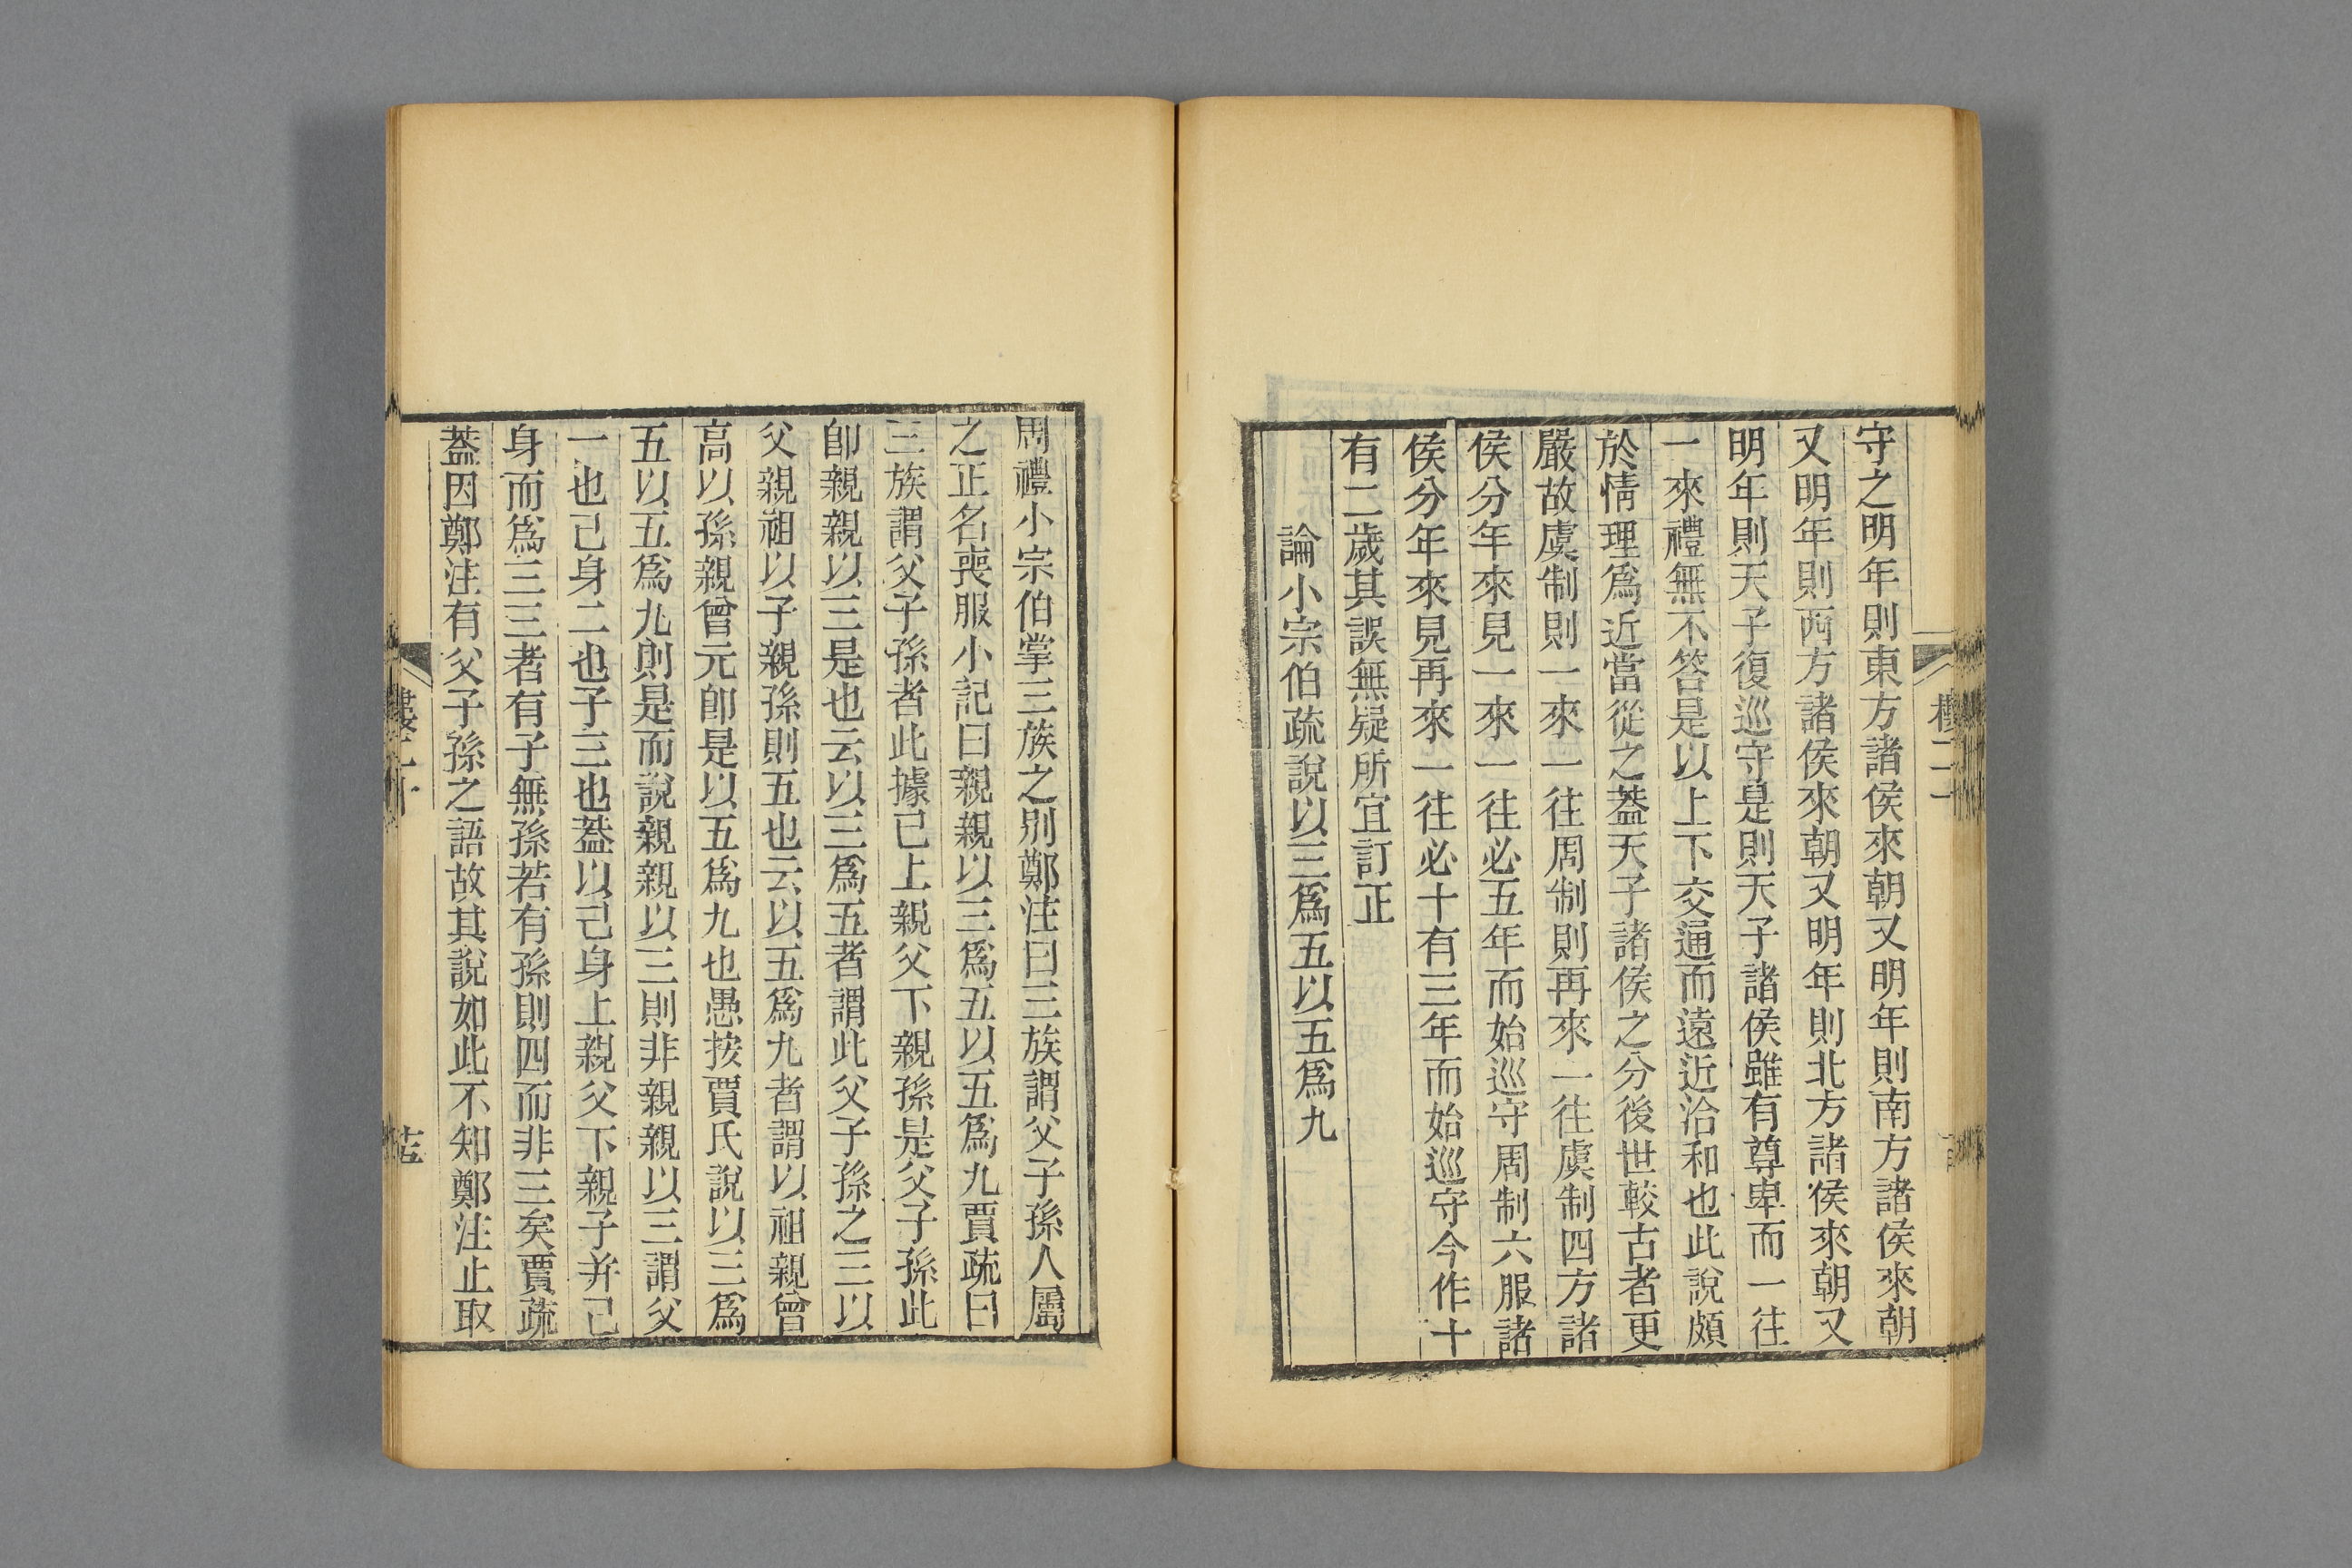 守之明年則東方諸侯來朝又明年則南方諸侯來朝
又明年則西方諸侯來朝又明年則北方諸侯來朝又
明年則天子復巡守是則天子諸侯雖有尊卑而一往
一來禮無不答是以上下交通而遠近洽和也此說頗
於情理爲近當從之蓋天子諸侯之分後世較古者更
嚴故虞制則一來一往周制則再來一往虞制四方諸
侯分年來見一來一往必五年而始巡守周制六服諸
侯分年來見再來一往必十有三年而始巡守今作十
有二歲其誤無疑所宜訂正
論小宗伯疏說以三爲五以五爲九
周禮小宗伯掌三族之別鄭注曰三族謂父子孫人屬
之正名喪服小記曰親親以三爲五以五爲九賈疏曰
三族謂父子孫者此據己上親父下親孫是父子孫此
卽親親以三是也云以三爲五者謂此父子孫之三以
父親祖以子親孫則五也云以五爲九者謂以祖親曾
高以孫親曾元卽是以五爲九也愚按賈氏說以三爲
五以五爲九則是而說親親以三則非親親以三謂父
一也己身二也子三也蓋以己身上親父下親子并己
身而爲三三者有子無孫若有孫則四而非三矣賈疏
蓋因鄭注有父子孫之語故其說如此不知鄭注止取